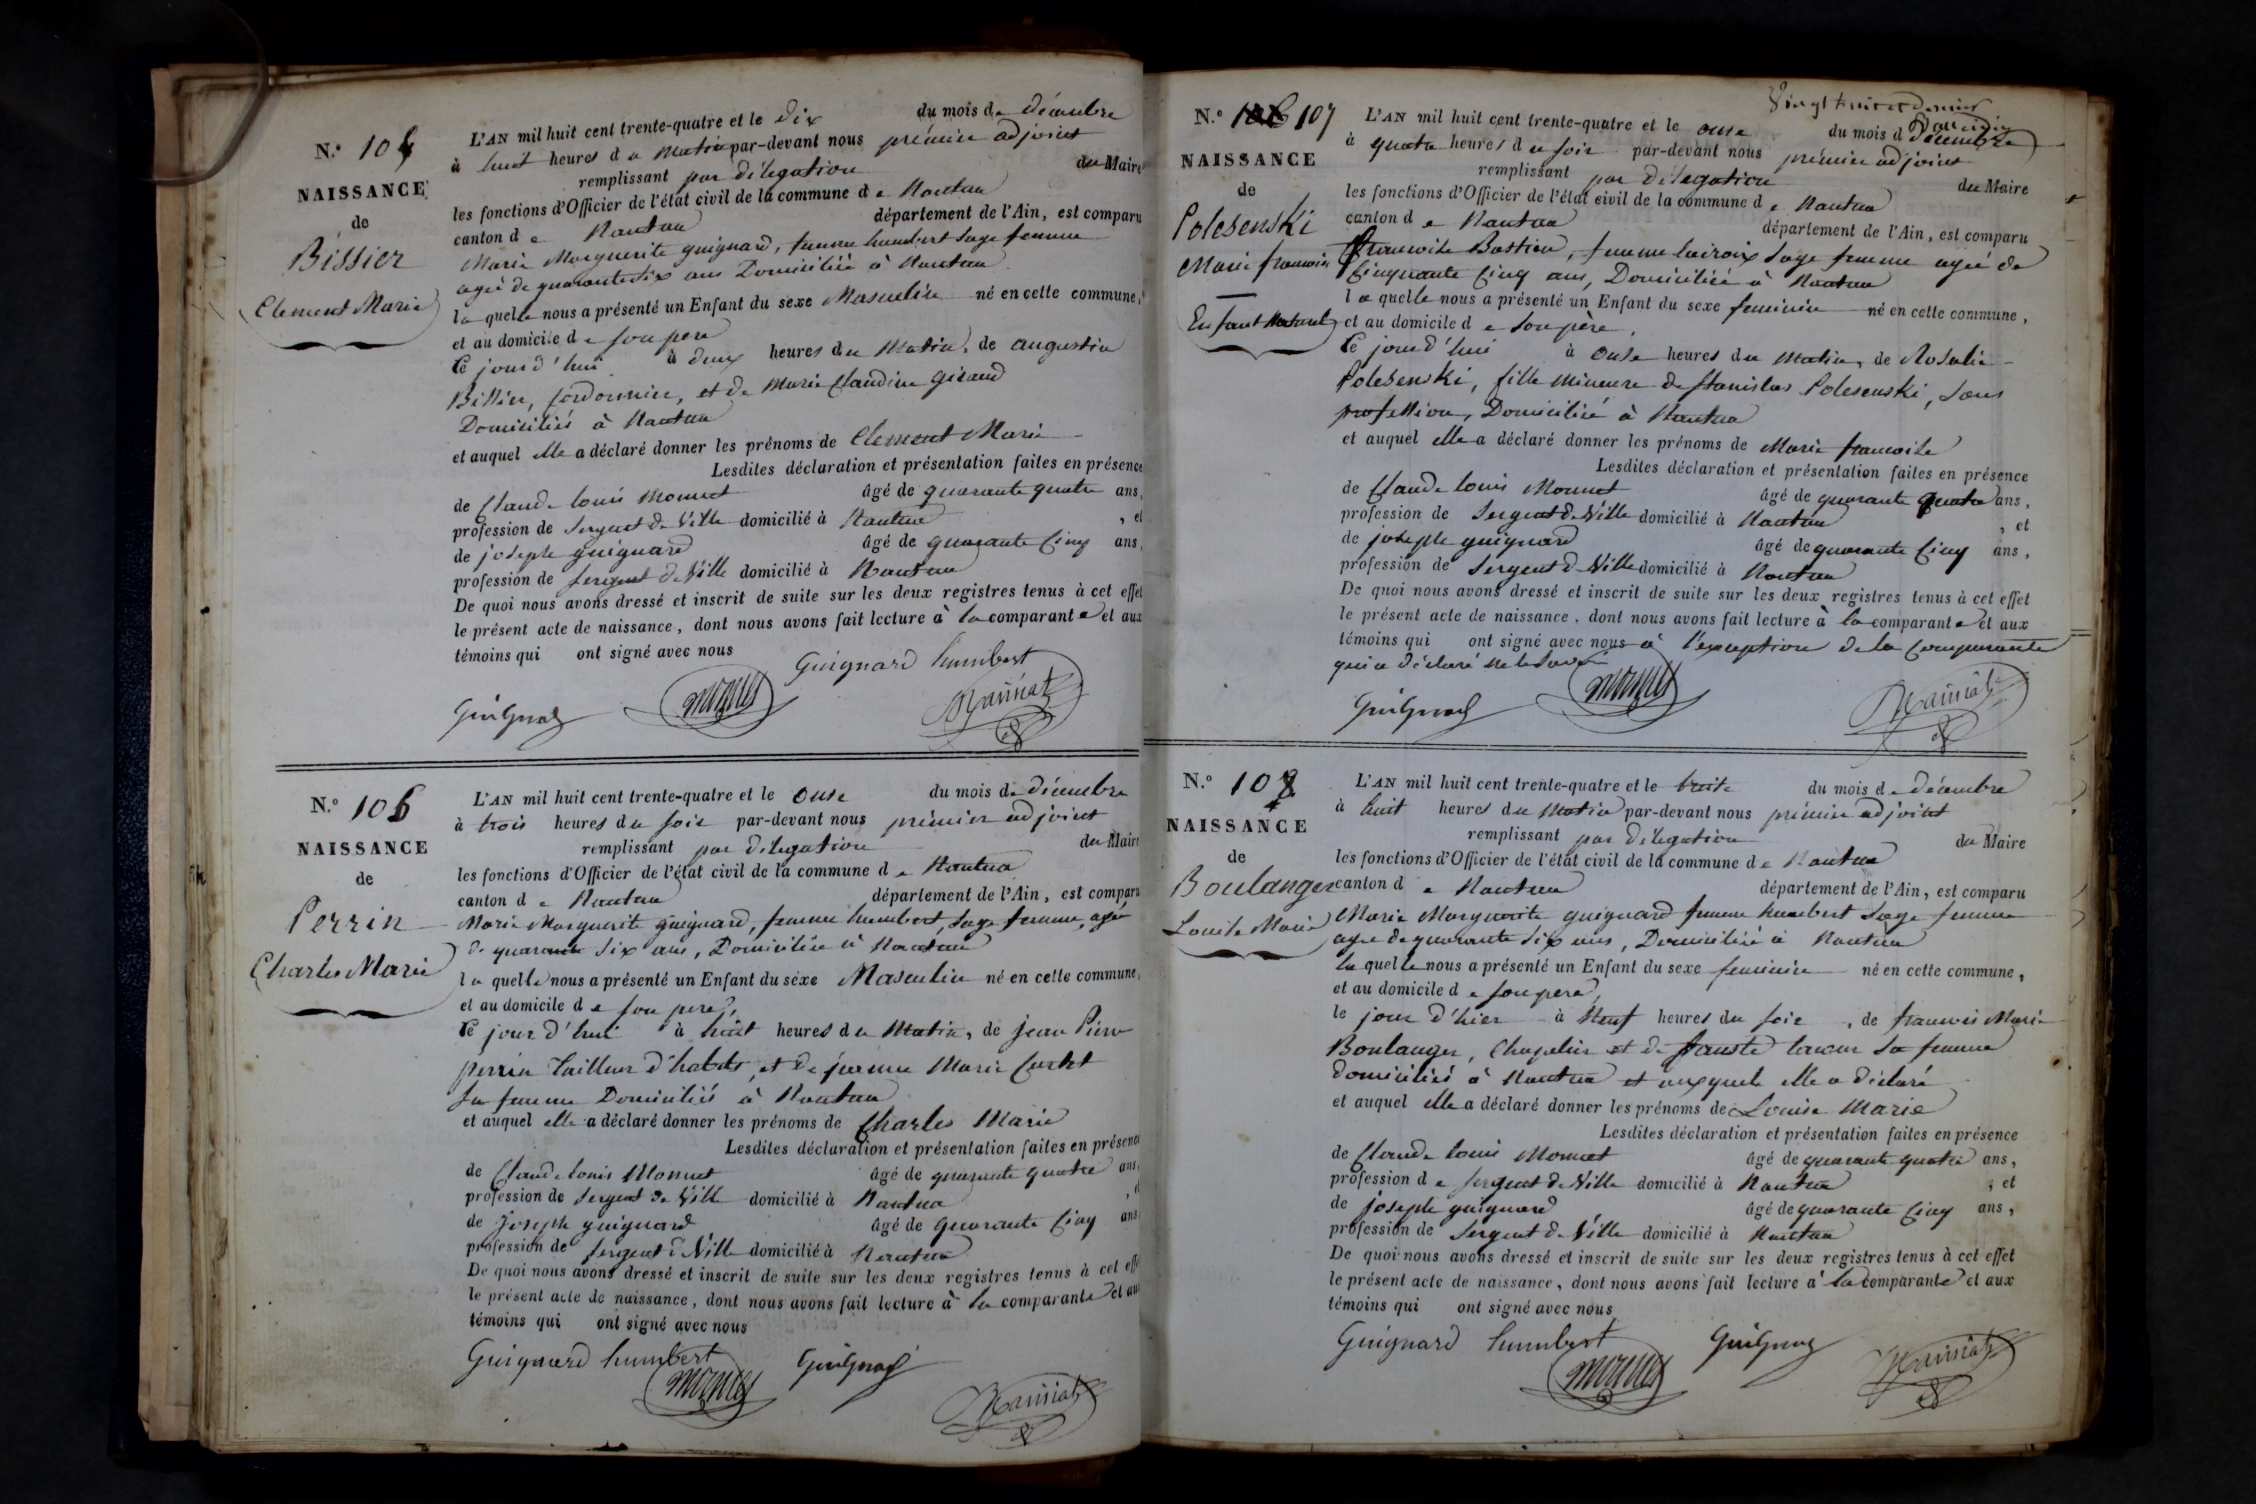 N.º 105
NAISSANCE
de
Bissier
Clement Marie
L'AN mil huit cent trente-quatre et le dix du mois de décembre
à huit heures du matin par-devant nous prémier adjoint
remplissant par délégation du Maire
les fonctions d'Officier de l'état civil de la commune de Nantua
canton de Nantua département de l'Ain, est comparu
Marie Marguerite guignard, femme humbert sage femme
agée de quarante six ans Domiciliée à Nantua
laquelle nous a présenté un Enfant du sexe Masculin né en cette commune,
et au domicile de son pere
Ce jourd'hui à deux heures du matin, de augustin
Bissier, cordonnier, et de Marie Claudine Giraud
Domiciliés à Nantua
et auquel elle a déclaré donner les prénoms de Clement Marie
Lesdites déclaration et présentation faites en présence
de Claude louis Monnet âgé de quarante quatre ans,
profession de sergent de Ville domicilié à Nantua , et
de joseph guignard âgé de quarante cinq ans,
profession de sergent de Ville domicilié à Nantua
De quoi nous avons dressé et inscrit de suite sur les deux registres tenus à cet effet
le présent acte de naissance, dont nous avons fait lecture à la comparante et aux
témoins qui ont signé avec nous
Guignard humbert
Guignard
N.º 106
NAISSANCE
de
Perrin
Charles Marie
L'AN mil huit cent trente-quatre et le onse du mois de décembre
à trois heures du soir par-devant nous prémier adjoint
remplissant par délégation du Maire
les fonctions d'Officier de l'état civil de la commune de Nantua
canton de Nantua département de l'Ain, est comparu
Marie Marguerite guignard, femme humbert, sage femme, agé
de quarante six ans, Domiciliée à Nantua
laquelle nous a présenté un Enfant du sexe Masculin né en cette commune,
et au domicile de son pere,
Ce jour d'hui à huit heures du matin, de jean Pierre
perrin tailleur d'habits, et de jeanne Marie
sa femme Domiciliés à Nantua
et auquel elle a déclaré donner les prénoms de Charles Marie
Lesdites déclaration et présentation faites en présence
de Claude louis Monnet âgé de quarante quatre ans,
profession de sergent de Ville domicilié à Nantua
de Joseph guignard âgé de quarante cinq ans
profession de sergent de Ville domicilié à Nantua
De quoi nous avons dressé et inscrit de suite sur les deux registres tenus à cet effe
le présent acte de naissance, dont nous avons fait lecture à la comparante et aux
témoins qui ont signé avec nous
Guignard humbert Guignard
N.º 106 107
NAISSANCE
de
Polesenski
Marie francoise
Enfant Naturel
L'AN mil huit cent trente-quatre et le onse du mois d décembre
à quatre heures du soir par-devant nous prémier adjoint
remplissant par délégation du Maire
les fonctions d'Officier de l'état civil de la commune de Nantua
canton de Nantua département de l'Ain, est comparu
francoise Bastien, femme lacroix sage femme agée de
Cinquante Cinq ans, Domiciliée à Nantua
laquelle nous a présenté un Enfant du sexe feminin né en cette commune,
et au domicile de son père,
Ce jourd'hui à onse heures du matin, de Rosalie
Polesenski, fille mineure de stanislas Polesenski, sans
profession, Domiciliée à Nantua
et auquel elle a déclaré donner les prénoms de Marie francoise
Lesdites déclaration et présentation faites en présence
de Claude louis Monnet âgé de quarante quatre ans,
profession de sergent de Ville domicilié à Nantua , et
de joseph guignard âgé de quarante cinq ans,
profession de sergent de Ville domicilié à Nantua
De quoi nous avons dressé et inscrit de suite sur les deux registres tenus à cet effet
le présent acte de naissance, dont nous avons fait lecture à la comparante et aux
témoins qui ont signé avec nous à l'exception de la comparante
qui a déclaré ne le savoir
Guignard
N.º 108
NAISSANCE
de
Boulanger
Louise Marie
L'AN mil huit cent trente-quatre et le treize du mois de décembre
à huit heures du matin par-devant nous prémier adjoint
remplissant par délégation du Maire
les fonctions d'Officier de l'état civil de la commune de Nantua
canton de Nantua département de l'Ain, est comparu
Marie Marguerite guignard femme humbert sage femme
agée de quarante six ans, Domiciliée à Nantua
laquelle nous a présenté un Enfant du sexe feminin né en cette commune,
et au domicile de son pere,
le jour d'hier à Neuf heures du soir, de francois Marie
Boulanger, Chapelier et de fauste sa femme
domiciliés à Nantua et auxquels elle a déclaré
et auquel elle a déclaré donner les prénoms de Louise Marie
Lesdites déclaration et présentation faites en présence
de Claude louis Monnet âgé de quarante quatre ans,
profession de sergent de Ville domicilié à Nantua , et
de joseph guignard âgé de quarante cinq ans,
profession de sergent de Ville domicilié à Nantua
De quoi nous avons dressé et inscrit de suite sur les deux registres tenus à cet effet
le présent acte de naissance, dont nous avons fait lecture à la comparante et aux
témoins qui ont signé avec nous
Guignard humbert Guignard